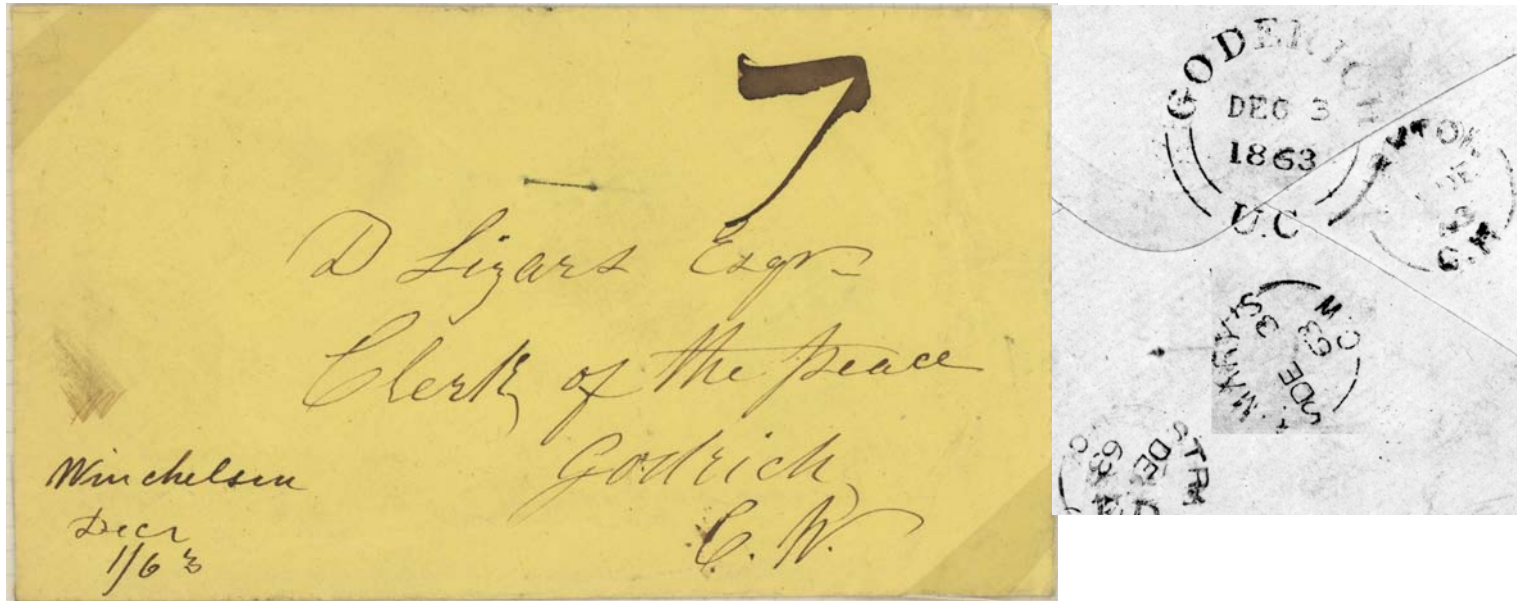 7
D Lizars Esqr
Clerk of the peace
Godrich
C. W.
Winchelsea
Decr
1/63
GODERICH
DEC 3
1863
U.C
C.W
MARYS
DE 3
63
C.W
STR
DE
63